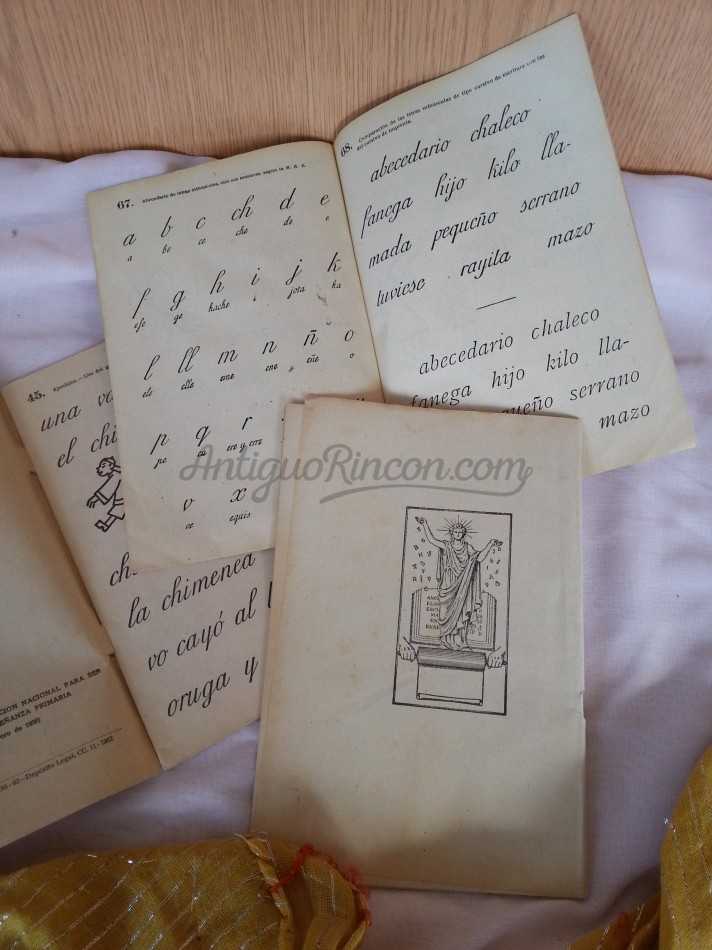 67. Abecedario de letras minúsculas, con sus nombres según la R. A. E.
a b c ch d e
a be ce che de e
f g h i j k
efe ge hache i jota ka
l ll m n ñ o
ele elle eme ene eñe o
p q r
pe cu ere y erre
v x
ve equis
68. Comparación de las letras minúsculas de tipo cursivo de escritura con las
del cursivo de imprenta.
abecedario chaleco
fanega hijo kilo lla-
mada pequeño serrano
tuviese rayita mazo
abecedario chaleco
fanega hijo kilo lla-
pequeño serrano
mazo
45.
una
el chi
ch
la chimenea
vo cayó al
oruga y
CION NACIONAL PARA SER
EÑANZA PRIMARIA
Depósito Legal, CC. 11-1962
AntiguoRincon.com